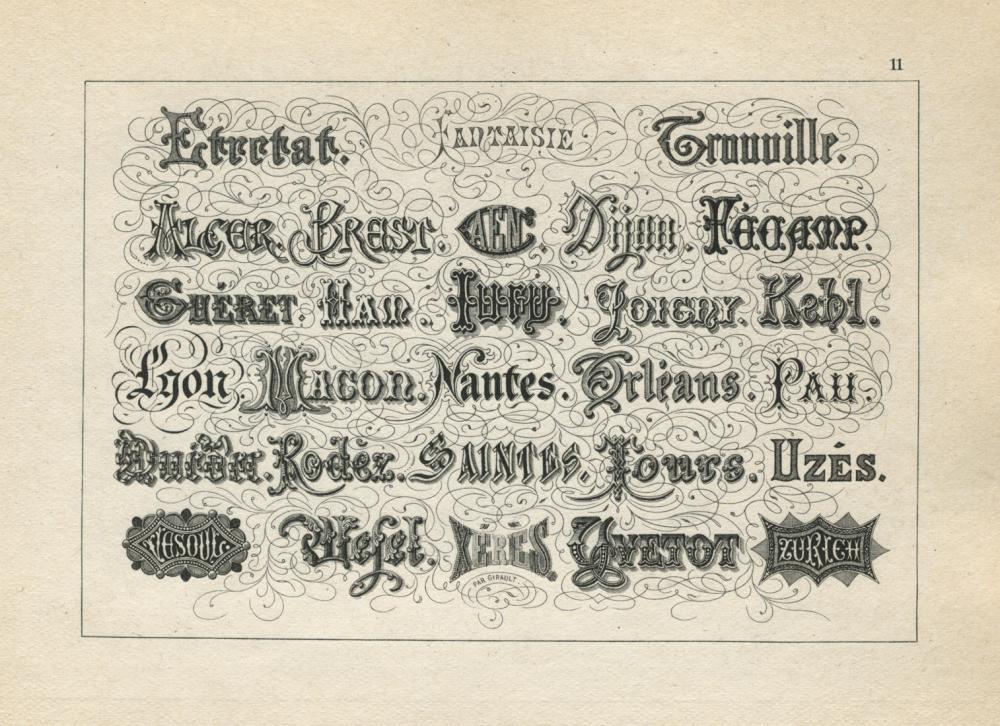 11
Etretat. FANTAISIE Trouville.
ALGER. BREST. CAEN. Dijon. FÉCAMP.
GUÉRET. HAM. IVRY. JOIGNY. Kehl.
Lyon. MACON. Nantes. Orléans. PAU.
Quédic. Rodez. SAINTES. Tours. UZÉS.
VESOUL. Wesel. XÉRÈS. YVETOT ZURICH
PAR GIRAULT.